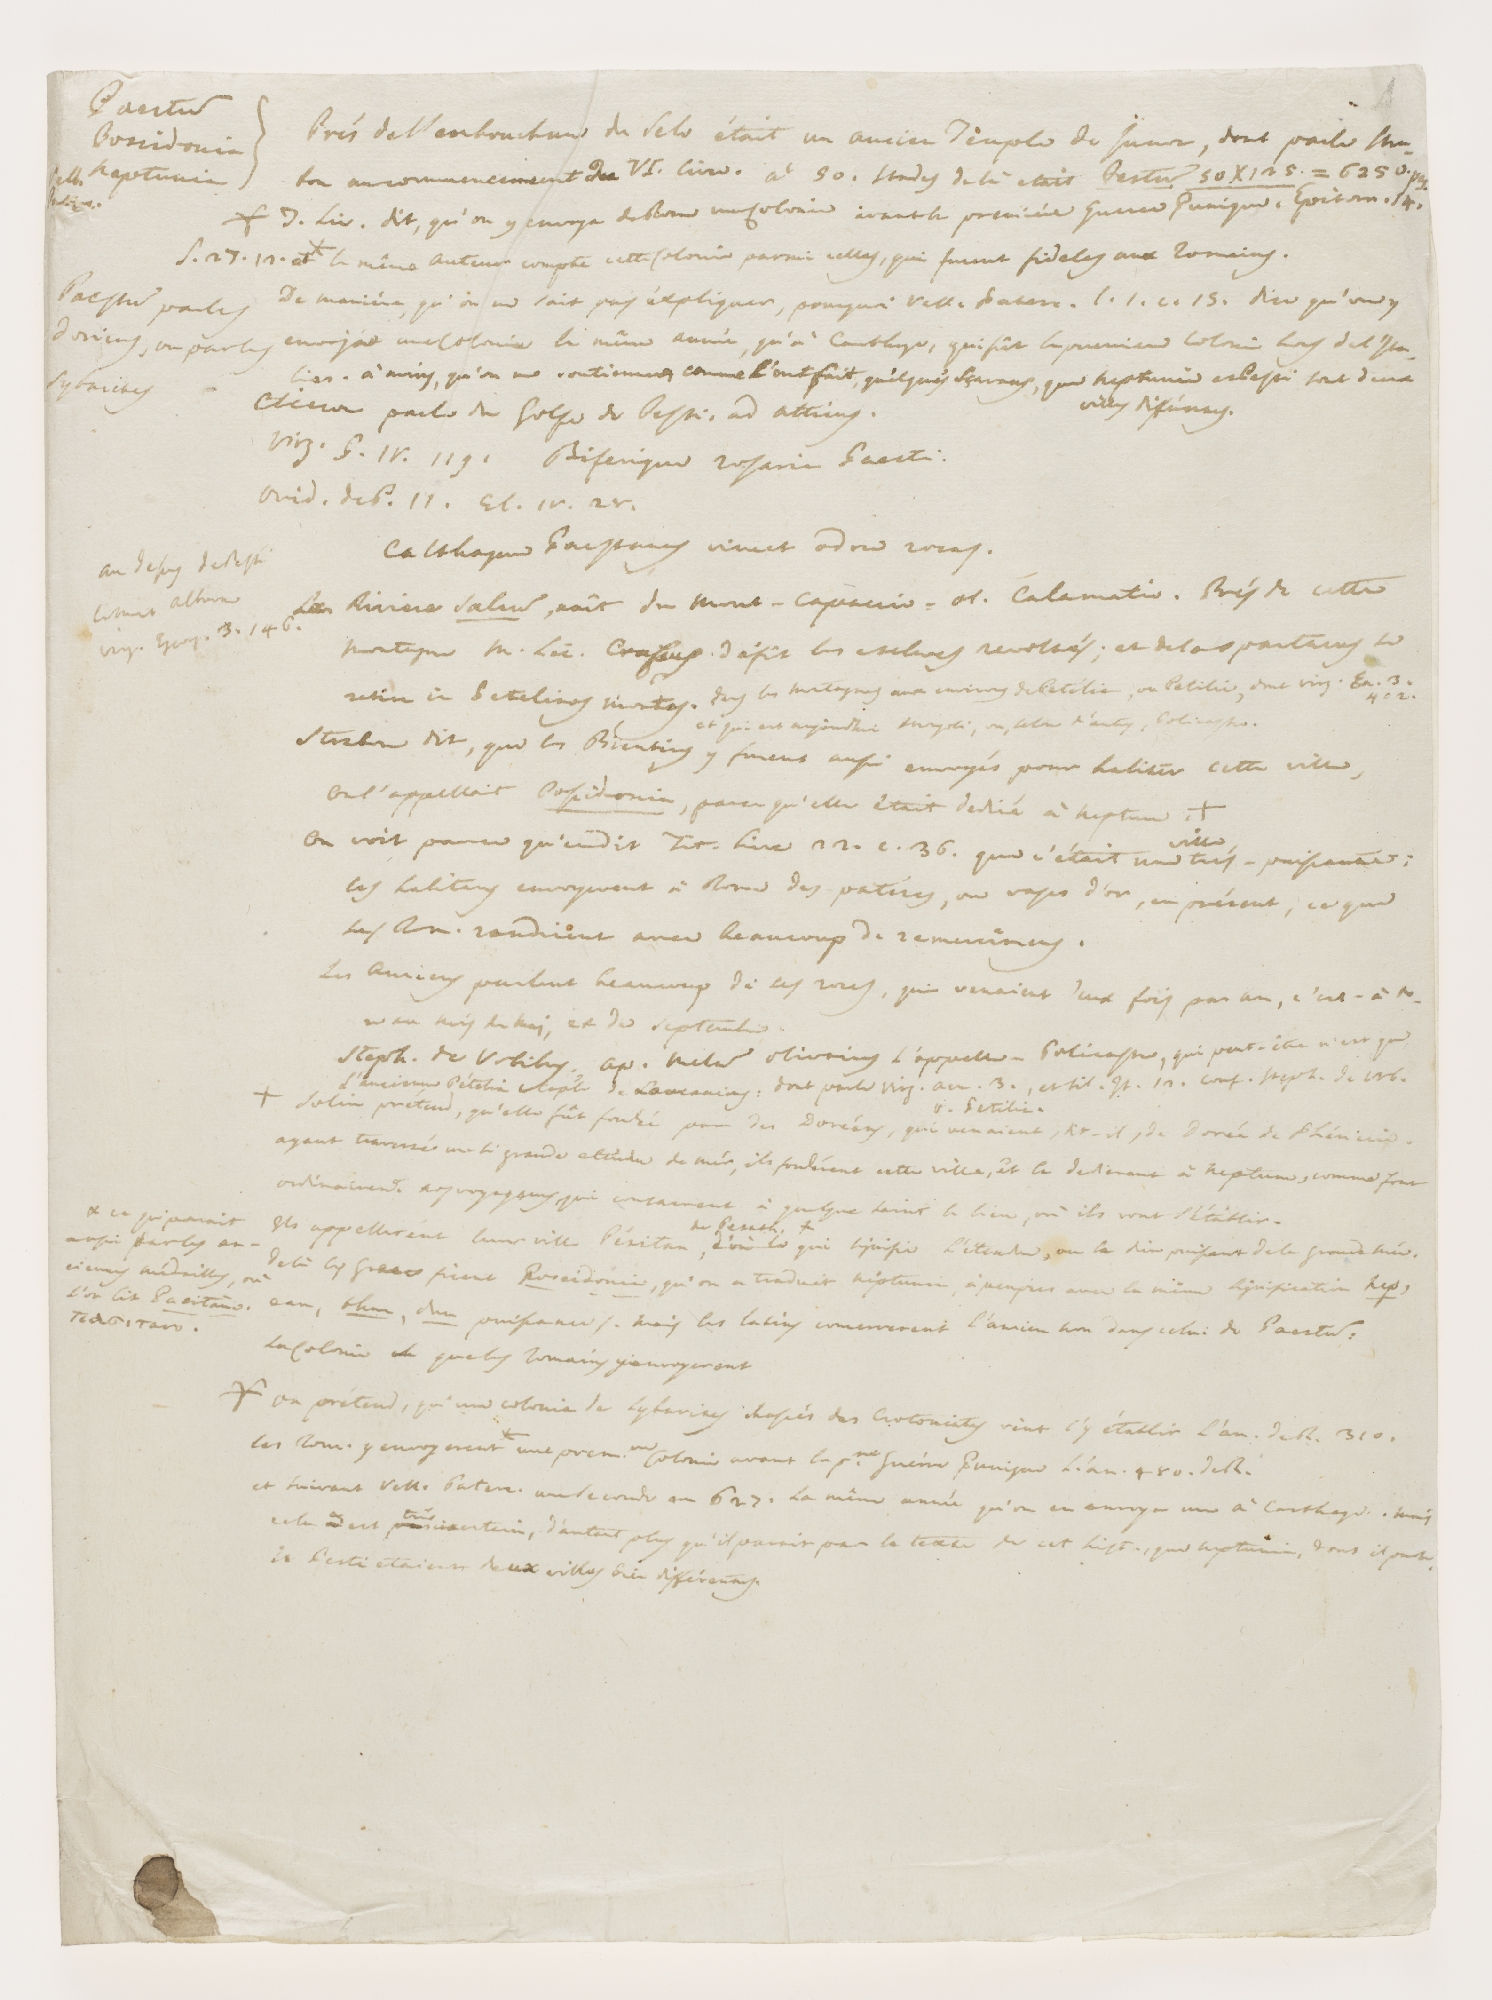 Paestum
Posidonia
Neptunia
Vell.
Près de l'embouchure du Selo était un ancien Temple de Junon, dont parle Stra-
bon au commencement du VI. livre. à 50. stades de là était Pestum 50 X 125. = 6250. pas.
T. Liv. dit, qu'on y envoya de Rome une Colonie avant la première Guerre Punique. Epitom. 14.
L. 27. 12. et le même Auteur compte cette Colonie parmi celles, qui furent fideles aux Romains.
Paestum par les
Doriens, ou par les
Sybarites
De manière, qu'on ne sait pas expliquer, pourquoi Vell. Paterc. l. 1. c. 15. dise qu'on y
envoja une Colonie la même année, qu'à Carthage, qui fût la première Colonie hors de l'Ita-
lie. à moins, qu'on ne soutienne comme l'ont fait, quelques Sçavans, que Neptunia et Pesti sont deux
villes différentes.
Ciceron parle du Golfe de Pesti. ad Atticus.
Virg. G. IV. 119. Biferique rosaria Paesti.
Ovid. de P. II. El. IV. 28.
Calthaque Paestanas vincet odore rosas.
au dessus de Pesti
Virg. Georg. 3. 146.
La Riviere Salsum, naît du mont-Capaccio = ol. Calamatio. Près de cette
montagne M. Lic. Crassus défit les esclaves revoltés; et de la Spartacus se
retira in Petelinos montes. dans les montagnes aux environs de Petelia, ou Petilia, dont Virg. En. 3.
402.
et qui est aujourdhui Strongoli, ou, selon d'autres, Policastro.
Strabon dit, que les Bruttiens y furent aussi envoyés pour habiter cette ville,
On l'appellait Possidonia, parce qu'elle était dediée à Neptune. +
On voit par ce qu'en dit Tit. Live 22. c. 36. que c'était une ville très-puissante:
les habitans envoyerent à Rome des patères, ou vases d'or, en présent, ce que
les Rom. rendirent avec beaucoup de remercimens.
Les Anciens parlent beaucoup de ses roses, qui venaient deux fois par an, c'est-à di-
re au mois de Maj, et de Septembre.
Steph. de Urbibus. ap. Melam Olivarius l'appelle = Policastro, qui peut-être n'est que
l'ancienne Pétélia de Lucaniens: dont parle Virg. aen. 3., et Sil. It. 12. conf. Steph. de Urb.
v. Petilia.
+ Solin prétend, qu'elle fût fondée par des Doréens, qui venaient, dit-il, de Dorée de Phénicie.
ayant traversé une si grande etendue de mer, ils fondèrent cette ville, et la dedierent à Neptune, comme font
ordinairemt. les voyageurs, qui consacrent à quelque saint le lieu, où ils vont s'établir.
Ils appellerent leur ville Pésitan, de Pesach, + qui signifie l'étendue, ou le dieu puissant de la grande mer.
x ce qui parait
aussi par les an-
ciennes médailles, où
l'on lit Paeitano.
De là les Grecs firent Poseidónia, qu'on a traduit Neptunia, à peu près avec la même signification Nep,
eau, puissance. Mais les latins conserverent l'ancien nom dans celui de Paestum;
La Colonie que les Romains y envoyerent
On prétend, qu'une colonie de Sybarites chassés des Crotoniates vint s'y établir l'an. de R. 310.
les Rom. y envoyerent une prem. Colonie avant la pme. Guerre Punique l'an. 480. de R.
et suivant Vell. Paterc. une seconde en 627. la même année qu'on en envoya une à Carthage. mais
cela est très incertain, d'autant plus qu'il parait par le texte de cet hist., que Neptunia, dont il parle,
et Pesti étaient deux villes bien différentes.